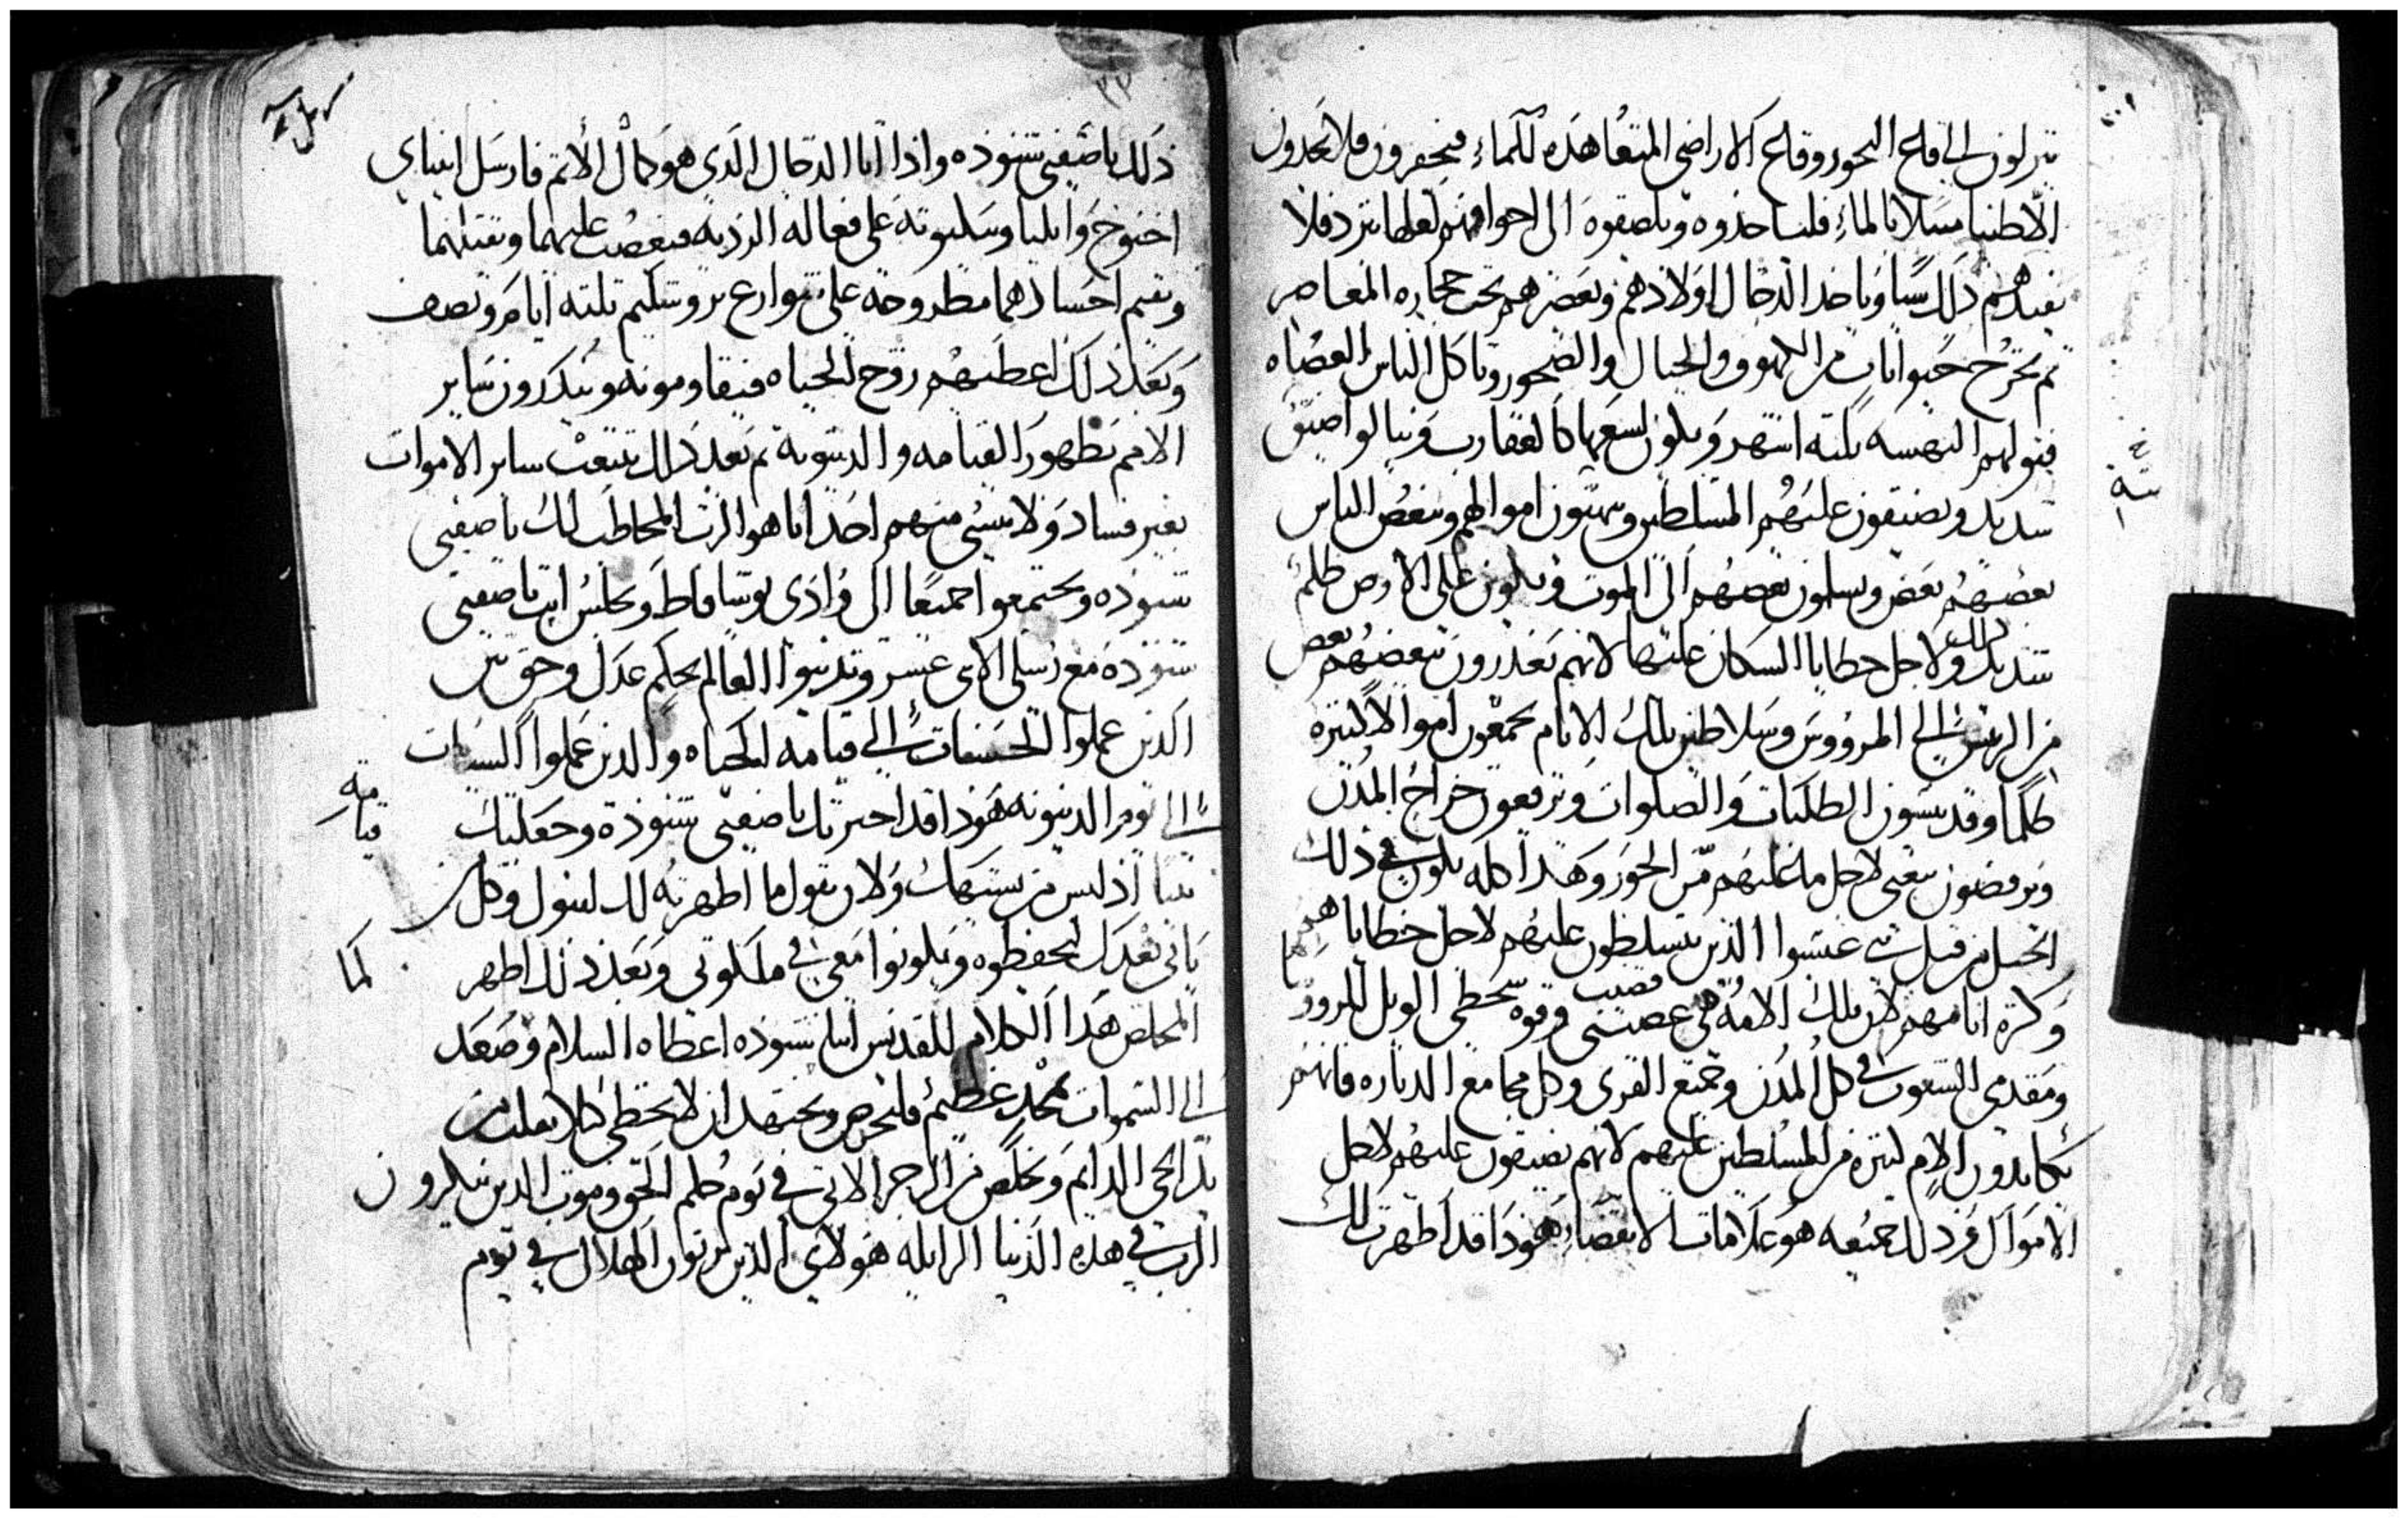 ينزلون الى قاع البحور وقاع الاراضي المتقاهده للماء فيحفرون فلا يجدون
الا طينا مبتلا بالماء فلياخذوه ويلصقوه الى اجوافهم لعلها تبرد فلا
يفيدهم ذلك شيا وياخد الدجال اولادهم ويعصرهم تحت حجاره المعاصر
تم تخرج حيوانات من الكهوف والجبال والصخور وتاكل الناس العصاه
فبقولهم النهسه تلته اشهر ويكون لسعها كالعقارب وينالوا ضيق
شديد ويضيقون عليهم المتسلطين وينهبون اموالهم ويبغض الناس
بعضهم بعض ويسلمون بعضهم الى الموت ويكون على الارض ظلم
شديد ذلك ولاجل خطايا السكان عليها لانهم يغدرون ببعضهم بعض
من الريس الى المرووس وسلاطين تلك الايام يجمعون اموالا كتيره
ظلما وقد ينسون الطلبات والصلوات ويرفعون خراج المدن
ويرفضون بيعتي لاجل ما عليهم من الجور وهدا كله يكون في ذلك
الجيل من قبل غشوا الذين يتسلطون عليهم لاجل خطاياهم
وكترة اتامهم لان تلك الامة هي قضيب عصبتي وقوه سخطي الويل للمرووس
ومقدمي الشعوب في كل المدن وجميع القرى وكل مجامع الدياره فانهم
يكابدون الام كتيره من المتسلطين عليهم لانهم يضيقون عليهم لاجل
الاموال فردلك جميعه هو علامات الانقضا هودا قد اظهرت لك
٣٣
ذلك يا صفيي شنوده واذا اتا الدجال الدى هو كمال الاتم فارسل انبياي
اخنوخ وايليا وسيكبوته على فعاله الرديه فيغضب عليهما ويقتلهما
وتقيم اجسادهما مطروحه على شوارع يروشليم تلته ايام ونصف
وبعد ذلك اعطيهم روح الحياه فيقاومونه ويندرون ساير
الامم بظهور القيامه والدينونة تم بعد دلك تنبعت ساير الاموات
بغير فساد ولا ينسى منهم احد انا هو الرب المخاطب لك يا صفيي
شنوده ويجتمعوا جميعا الى وادى يوشافاط وتجلس انت يا صفيي
شنوده مع رسلي الاتى عشر وتدينوا العالم بحكم عدل وحق بين
الدين عملوا الحسنات الى قيامه الحياه والدين عملوا السيات
الى يوم الدينونه هودا قد اخترتك يا صفيي شنوده وجعلتك
قيامة
نبيا اذ ليس من يشبهك ولا من يقول ما اظهرته لك ليقول وكل من
ياتى بعدك ليحفظوه ويكونوا معي في ملكوتي وبعد ذلك اظهر
لما
المخلص هدا الكلام للقديس انبا شنوده اعطاه السلام وصعد
الى السموات بمجد عظيم فلنحرص ونجتهد ان لا نخطي كيلا نعلب من
الحى الدايم ونخلص من الرجز الاتي في يوم حكم الحق وموت الدين ينكرون
الرب في هده الدنيا الزايله هولاي الدين يرتون الهلاك في يوم